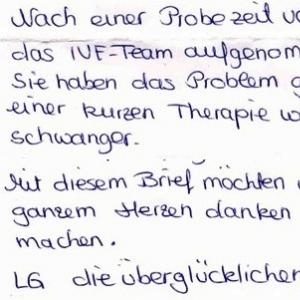 Nach einer Probezeit v
das IVF-Team aufgenom
Sie haben das Problem g
einer kurzen Therapie w
schwanger.
Mit diesem Brief möchten
ganzem Herzen danken
machen.
LG die überglücklichen